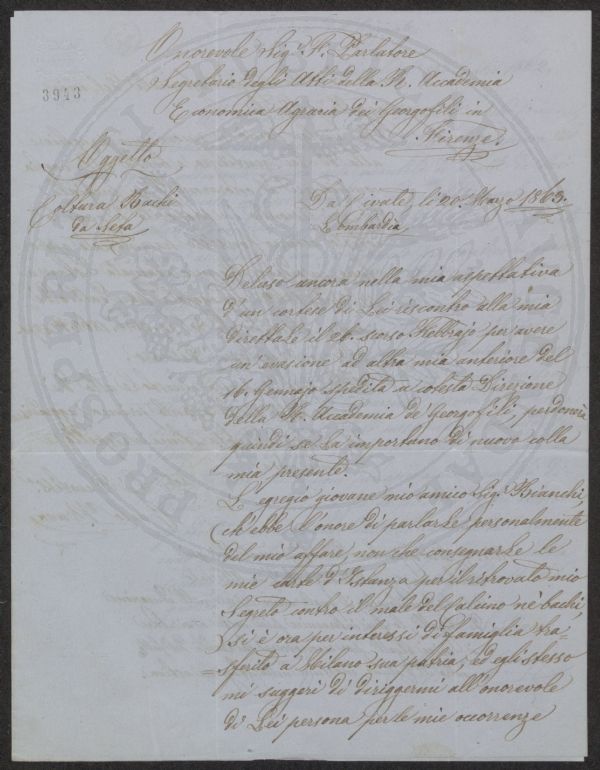 Onorevole Sigr. F. Parlatore
Segretario degli Atti della R. Accademia
3943
Economica Agraria dei Georgofili in
Firenze.
Oggetto
Coltura Bachi
da Seta
Da Civate, li 20. Marzo 1863.
Lombardia
Deluso ancora nella mia aspettativa
d'un cortese di Lei riscontro alla mia
direttale il 26. scorso Febbrajo per avere
un'evasione ad altra mia anteriore del
16. Gennajo spedita a cotesta Direzione
della R. Accademia de' Georgofili, perdonerà
quindi se La importuno di nuovo colla
mia presente.
L'egregio giovane mio amico Sigr. Bianchi,
ch'ebbe l'onore di parlarLe personalmente
del mio affare, non che consegnarLe le
mie carte d'Istanza per il ritrovato mio
Segreto contro il male del calcino ne' bachi,
si è ora per interessi di famiglia tra=
=sferito a Milano sua patria, ed egli stesso
mi suggerì di diriggermi all'onorevole
di Lei persona per le mie occorrenze